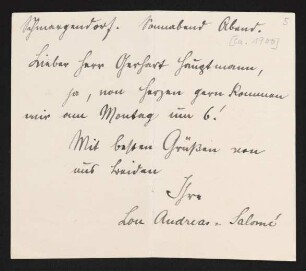 Schmargendorf. Sonnabend Abend.
5
Lieber Herr Gerhart Hauptmann,
ja, von Herzen gern kommen
wir am Montag um 6!
Mit besten Grüßen von
uns beiden
Ihre
Lou Andreas-Salomé